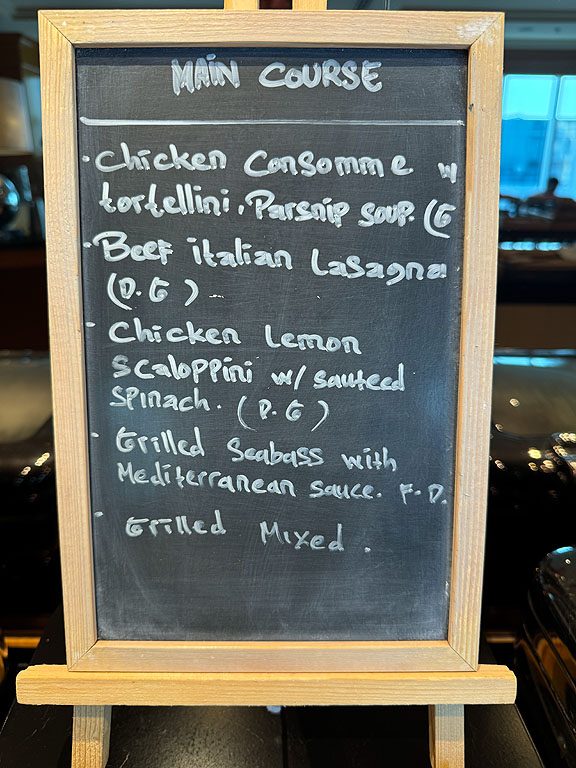 MAIN COURSE
• Chicken Consomme w
tortellini, Parsnip soup. (G
• Beef italian Lasagna
(D.G)
• Chicken Lemon
Scaloppini w/ sauteed
spinach. (D.G)
• Grilled Seabass with
Mediterranean sauce. F.D.
• Grilled Mixed.